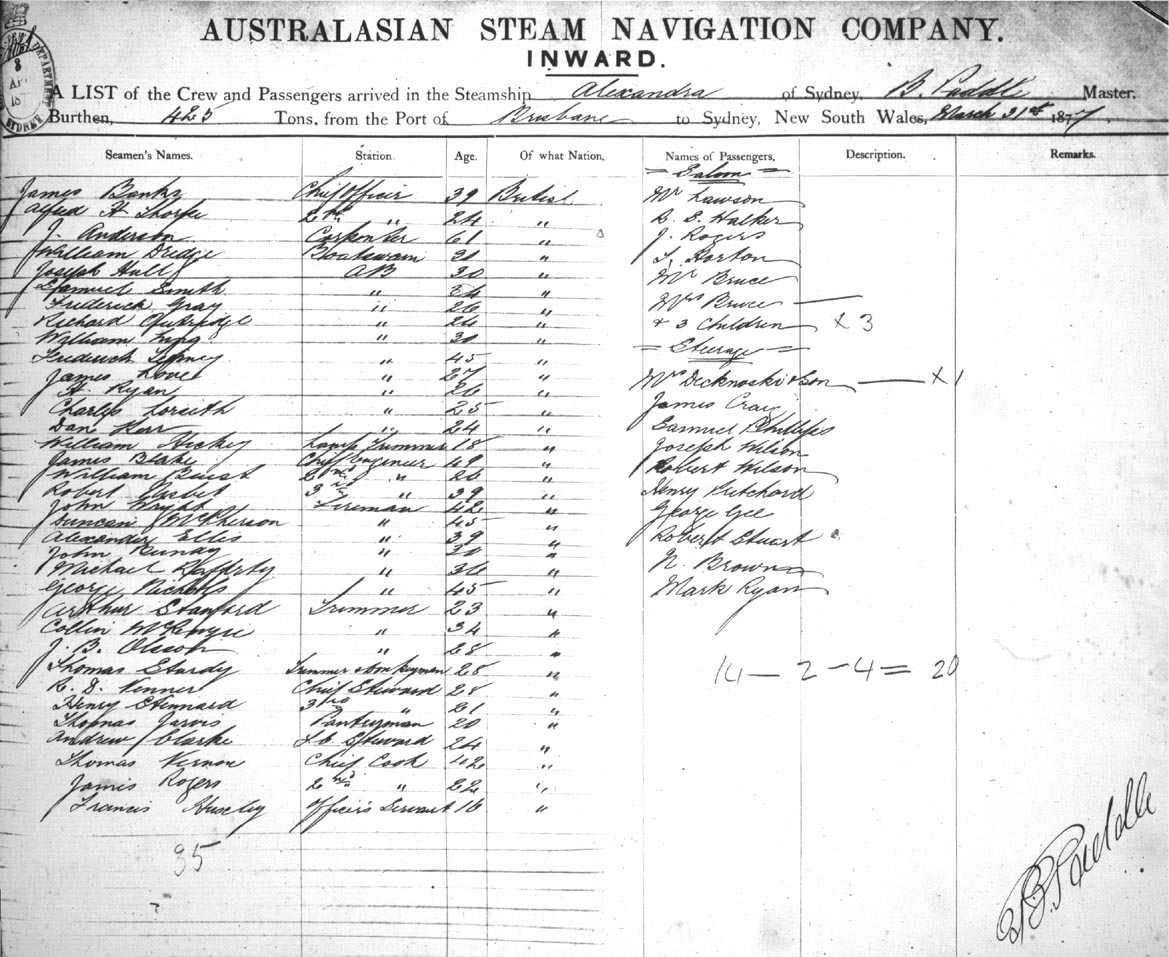 AUSTRALASIAN STEAM NAVIGATION COMPANY.
INWARD.
A LIST of the Crew and Passengers arrived in the Steamship Alexandra of Sydney, B. Paddle Master.
Burthen, 425 Tons, from the Port of Brisbane to Sydney, New South Wales, March 31st 1877.
Seamen's Names. Station. Age. Of what Nation. Names of Passengers, Description. Remarks.
= Saloon =
James Banks Chief Officer 39 British Mr Lawson
Alfred H Thorpe 2nd " 24 " R. S. Walker
J. Anderson Carpenter 61 " J. Rogers
William Dredge Boatswain " Horton
Joseph Hull AB 30 " Mr Bruce
Samuel Smith " " Mrs Bruce
Frederick Gray " 26 " & 3 Children x 3
Richard " 24 "
William King " " = Steerage =
Frederick " 45 "
James Lovel " 27 " Mrs Decknoski & Son x 1
H. Ryan " 26 " James Craig
Charles " 25 "
Dan Kerr " 24 " Samuel Phillips
William Hickey Lamp Trimmer 18 " Joseph Wilson
James Blake Chief Engineer 49 " Robert Wilson
William 2nd " "
Robert Nisbet 3rd " 39 " Henry Pritchard
John Wright Fireman 42 " George Gee
Duncan McPherson " 45 "
Alexander Ellis " 39 " Robert Stuart
John " 30 " N. Brown
Michael Rafferty " 36 "
George Nichols " 45 " Mark Ryan
Arthur Stanford Trimmer 23 "
Collin McKenzie " 34 "
J. B. Olsson " 28 "
Thomas Sturdy Trimmer & Donkeyman 28 " 14 - 2 - 4 = 20
R. D. Venner Chief Steward 28 "
Henry Stennard " 21 "
Thomas Jarvis Pantryman 20 "
Andrew Clarke Steward 24 "
Thomas Vernon Chief Cook 42 "
James Rogers 2nd " 22 "
Francis Huxley Officers Servant 16 "
35
B. Paddle